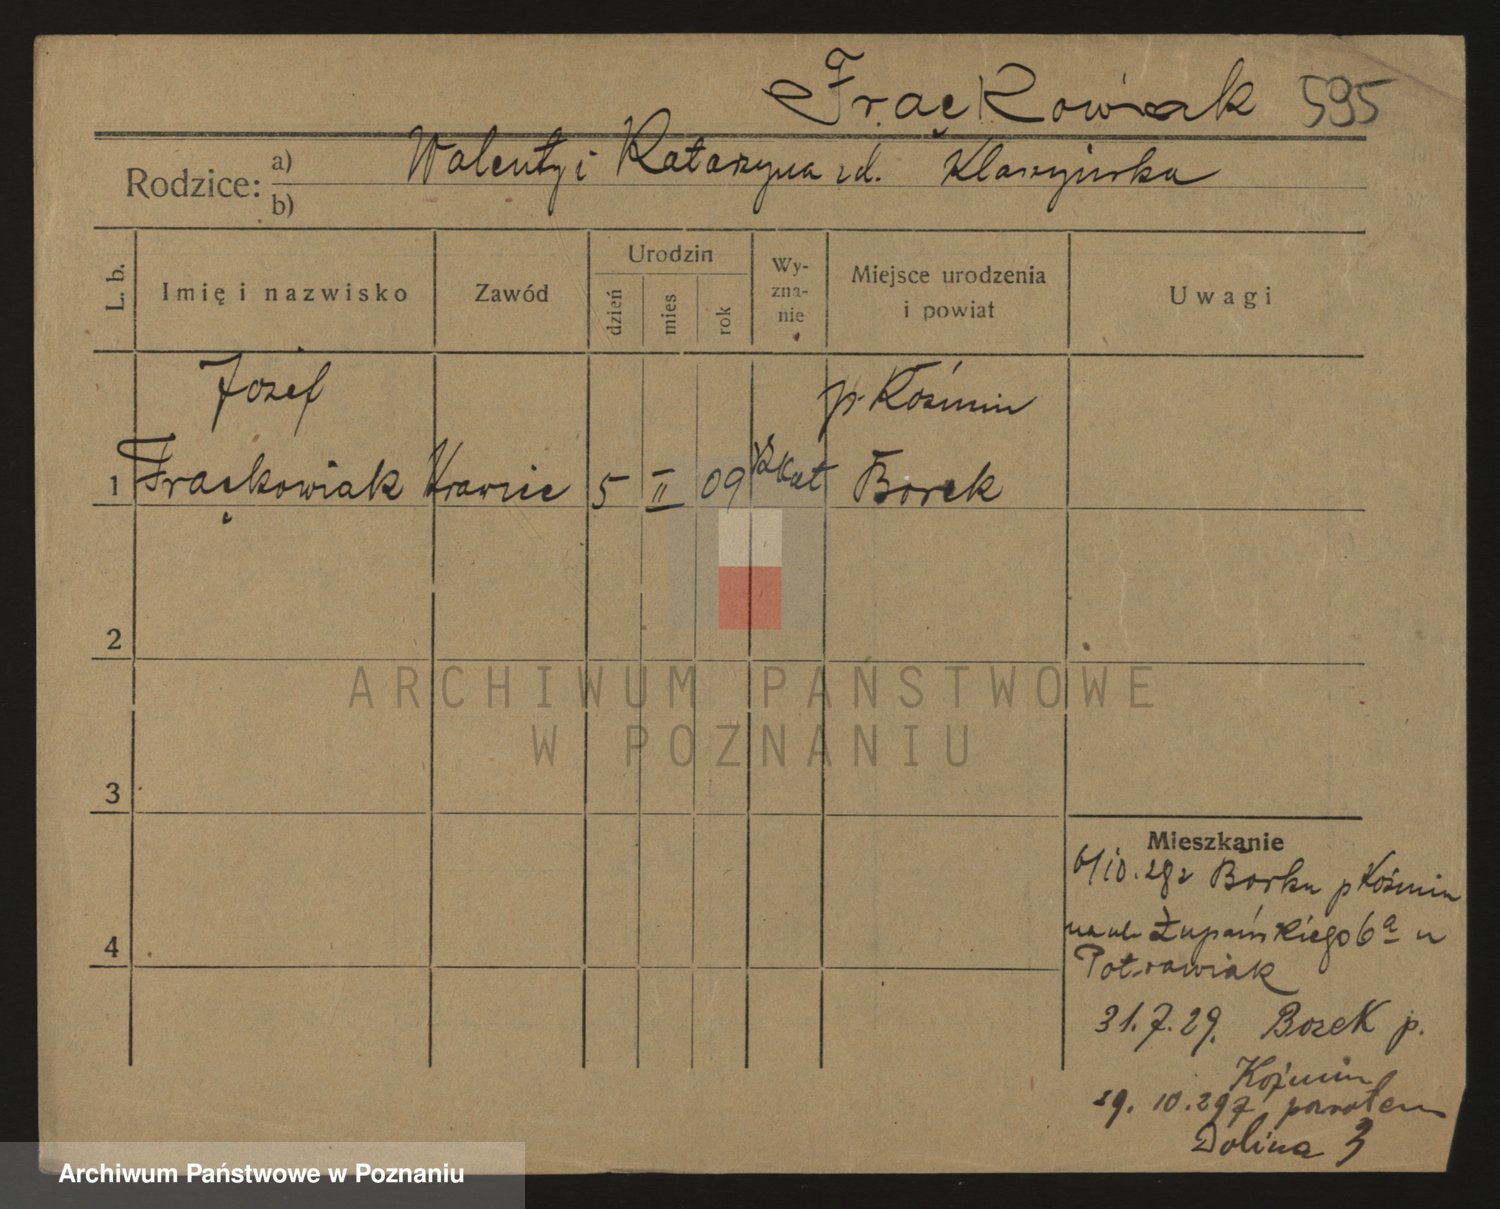 Frąckowiak 595
Rodzice: a) Walenty i Katarzyna zd.
b)
L. b.
Imię i nazwisko
Zawód
Urodzin
dzień
mies
rok
Wy-
zna-
nie
Miejsce urodzenia
i powiat
Uwagi
Józef
p. Koźmin
1 Frąckowiak Krawiec 5 II 09 Rkat Borek
2
3
4
ARCHIWUM PAŃSTWOWE
W POZNANIU
Mieszkanie
6/10.28 z Borku p Koźmin
na ul Żupańskiego 6a u
Potrawiak
31.7.29. Borek p.
Koźmin
29.10.29 z powrotem
Dolina 3
Archiwum Państwowe w Poznaniu